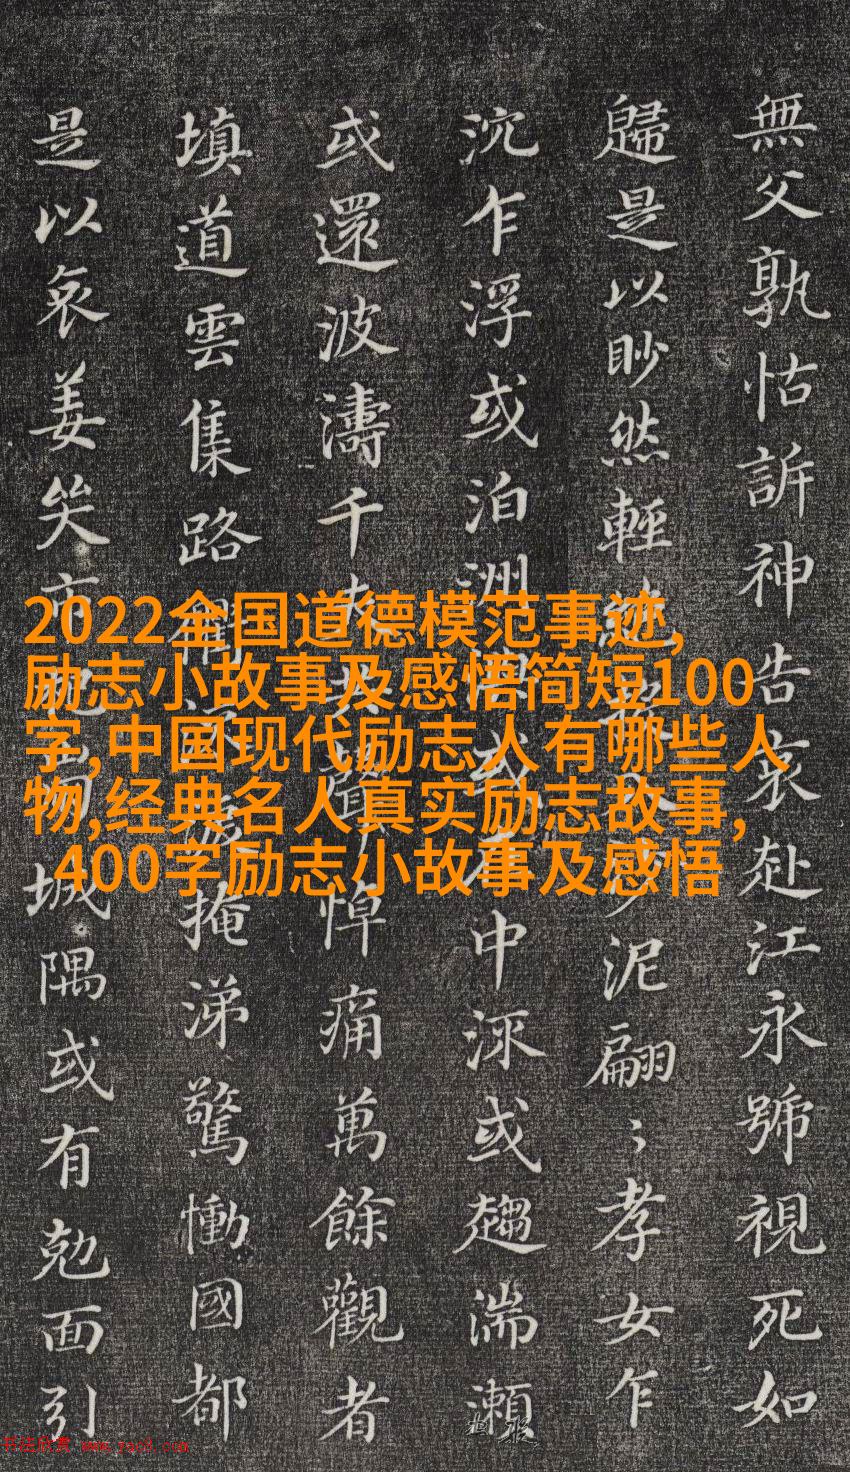 無父孰怙訴神告哀赴江永號視死如
歸是以眇然輕絶泥翩〻孝女乍
沉乍浮或泊洲嶼或中流或趨湍瀨
或還波濤千夫失聲悼痛萬餘觀者
填道雲集路衢流掩涕驚慟國都
是以哀姜哭市杞崩城隅或有尅面引
2022全国道德模范事迹,
励志小故事及感悟简短100
字,中国现代励志人有哪些人
物,经典名人真实励志故事,
400字励志小故事及感悟
书法欣赏 www.yac8.com